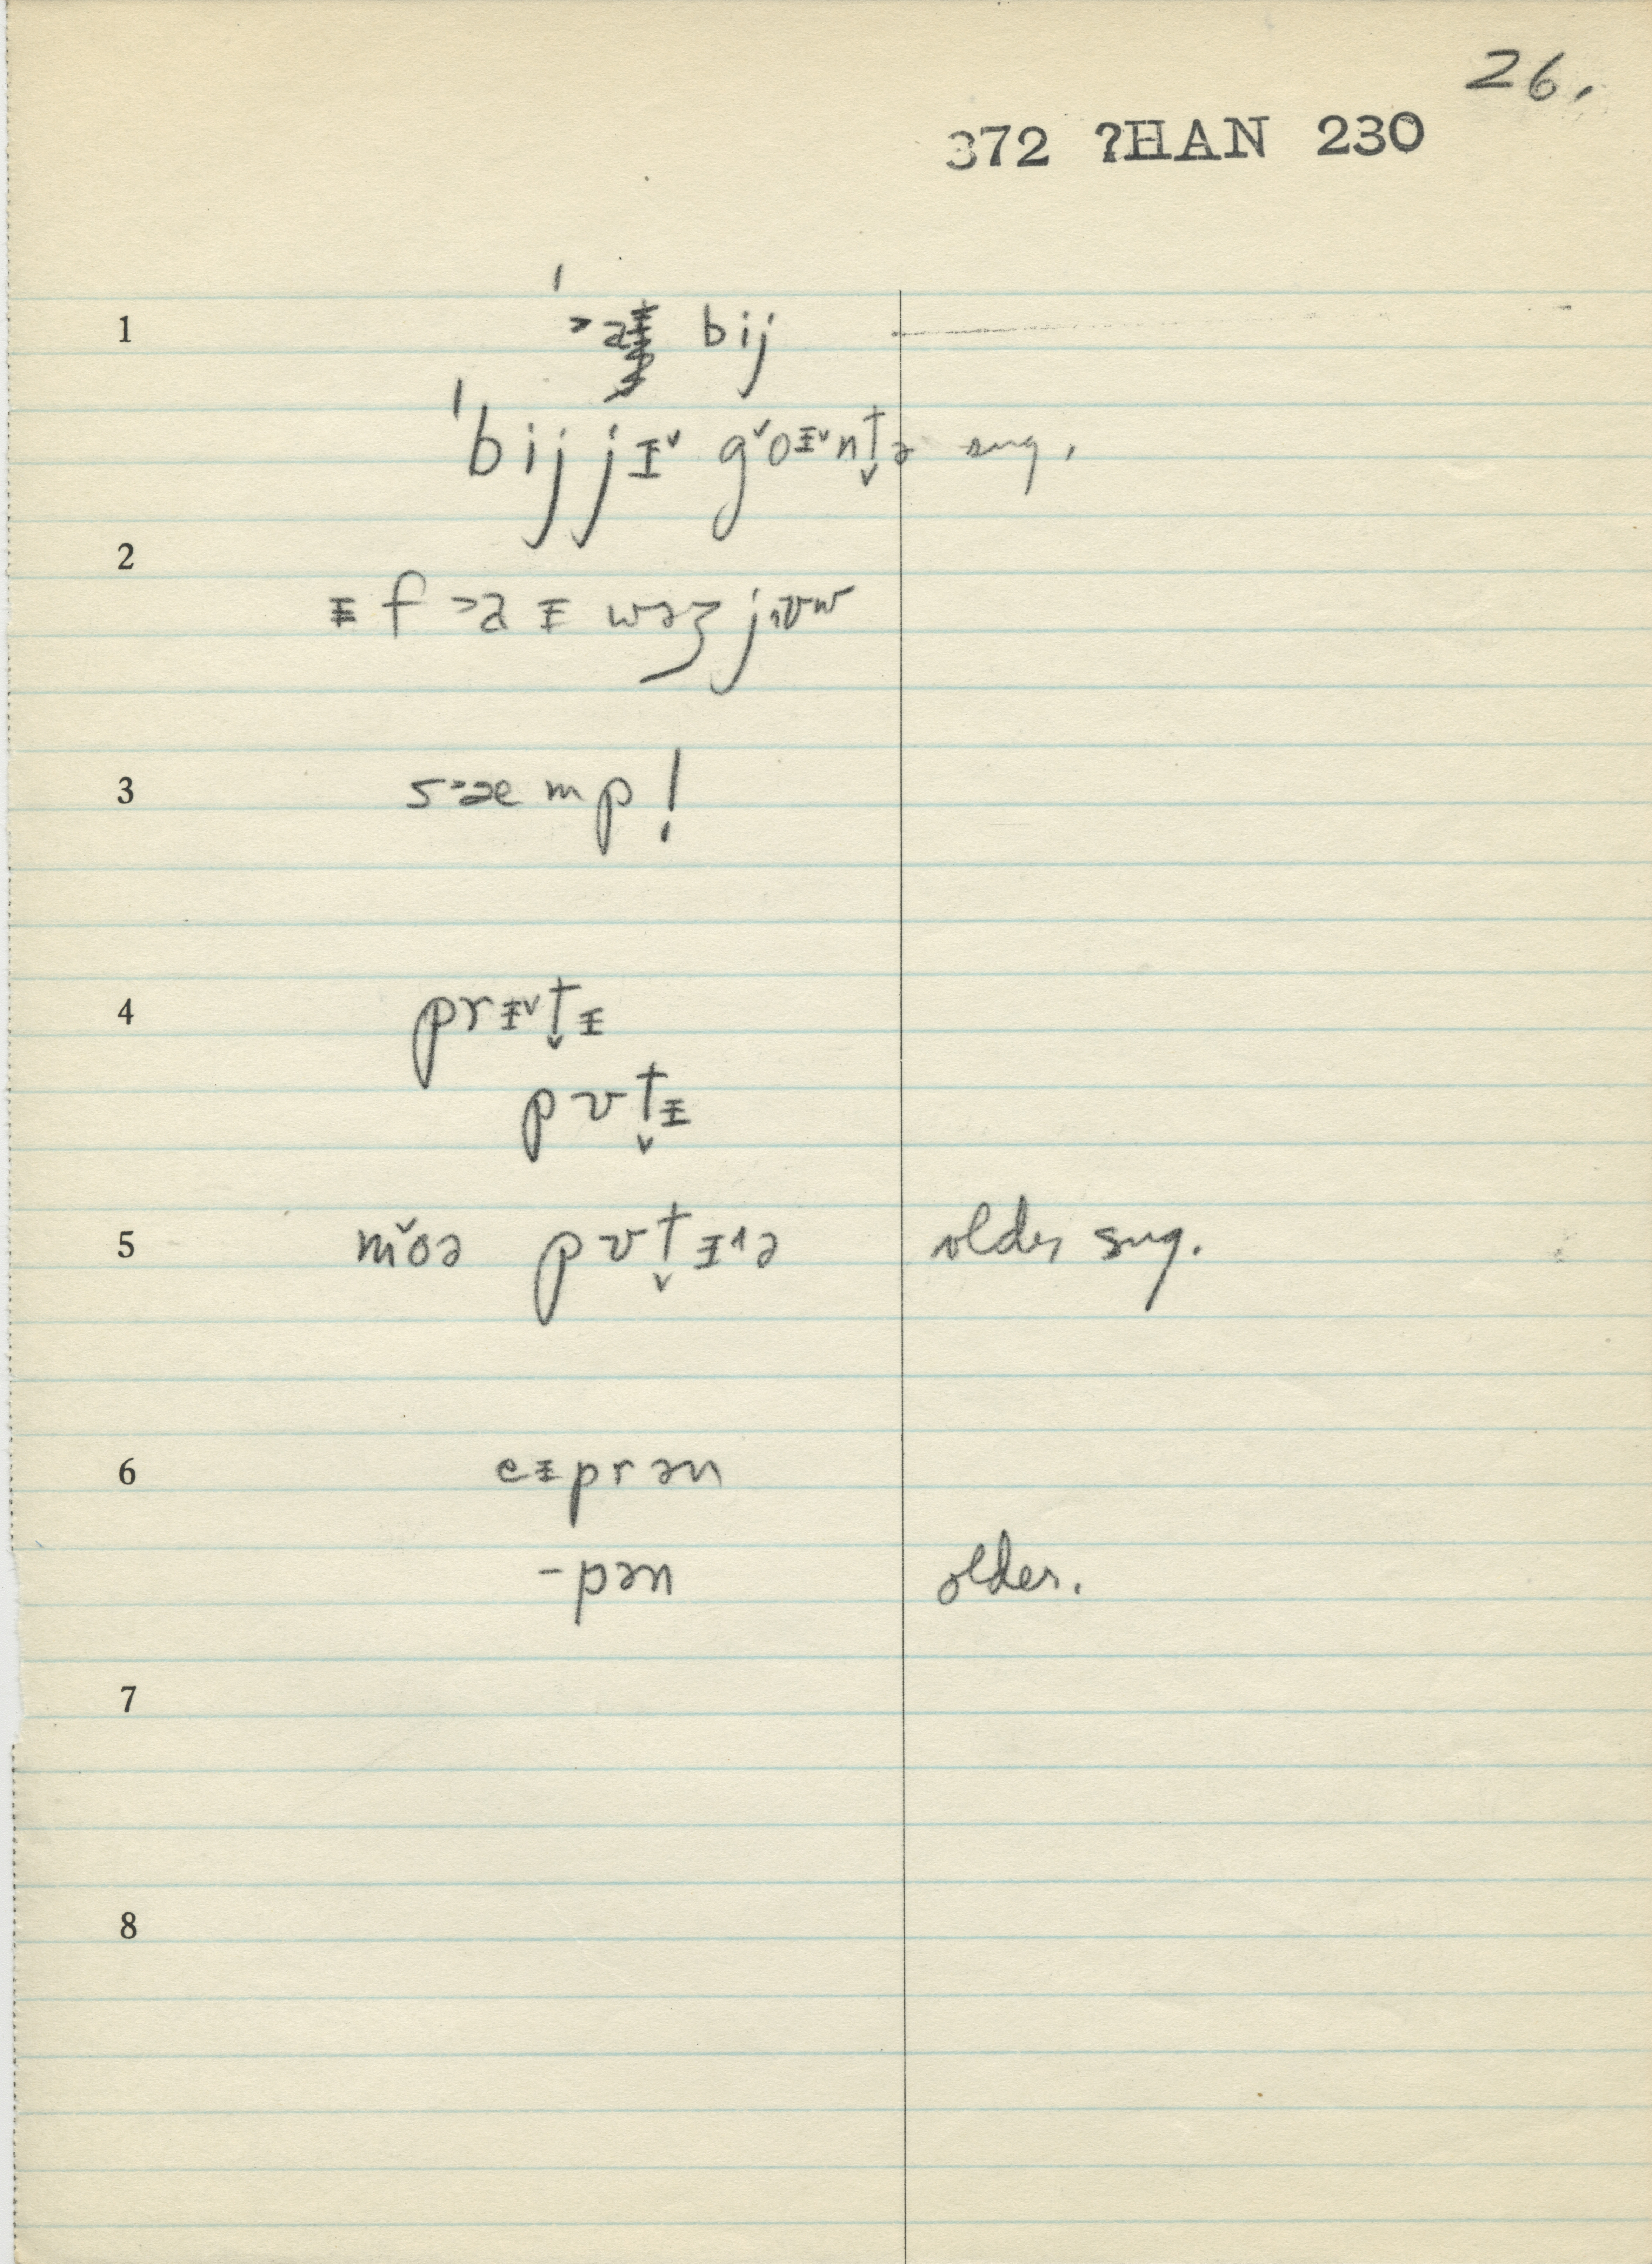 26.
372 ?HAN 230
1 ˈ˃a bij
ˈbij jɪ˅ g˅oɪ˅nt̬ə sug.
2 ɪf ˃a ɪ wəʒ jʊw
3 s˃æmp!
4 prɪ˅t̬ɪ
pʊt̬ɪ
5 mo̬ə pʊt̬ɪ˄ə older sug.
6 eɪprən
-pən older.
7
8